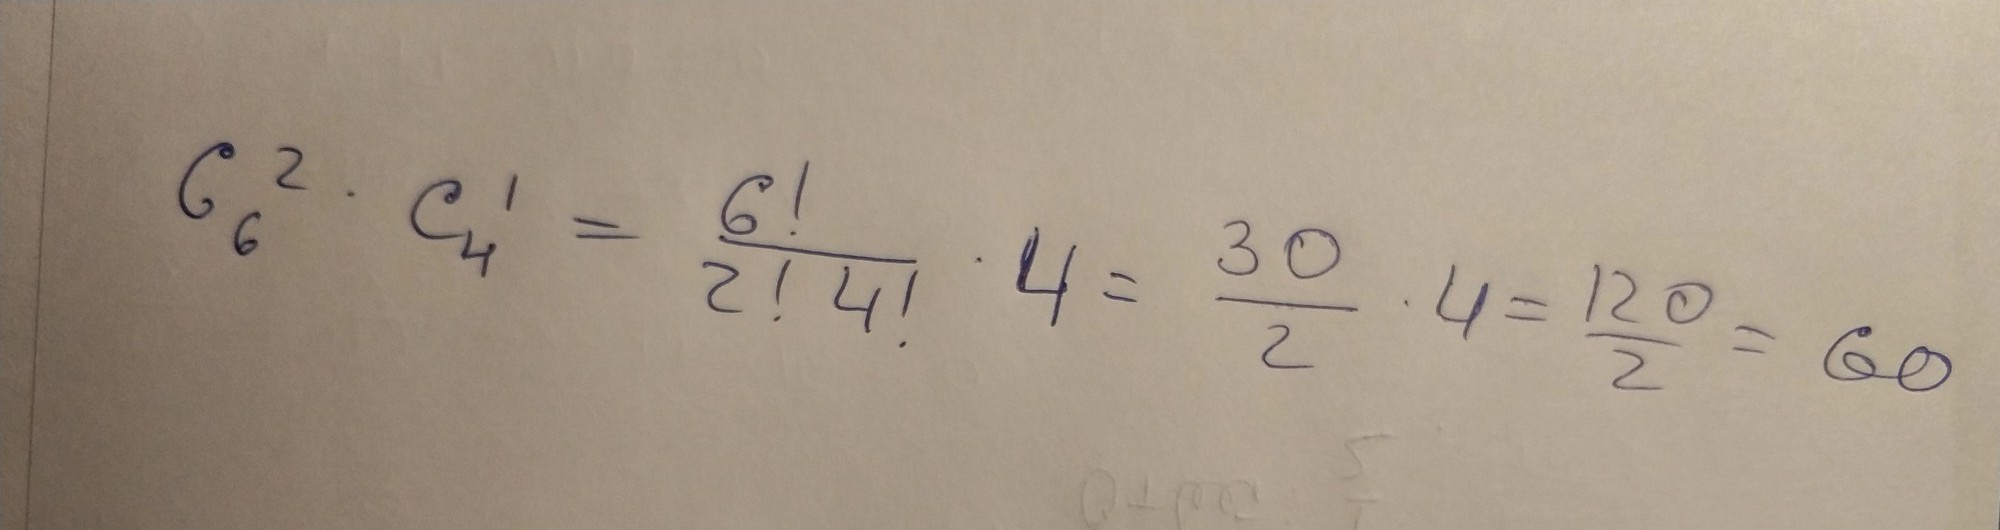 C₆² · C₄¹ = 6!/(2! 4!) · 4 = 30/2 · 4 = 120/2 = 60